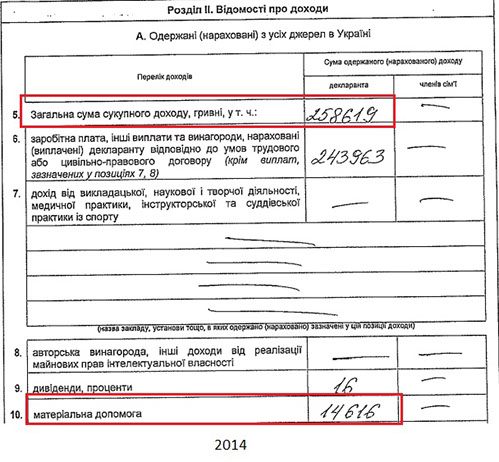 Розділ II. Відомості про доходи
А. Одержані (нараховані) з усіх джерел в Україні
Перелік доходів
Сума одержаного (нарахованого) доходу
декларанта
членів сім'ї
5. Загальна сума сукупного доходу, гривні, у т. ч.: 258619 —
6. заробітна плата, інші виплати та винагороди, нараховані
(виплачені) декларанту відповідно до умов трудового
або цивільно-правового договору (крім виплат,
зазначених у позиціях 7, 8) 243963 —
7. дохід від викладацької, наукової і творчої діяльності,
медичної практики, інструкторської та суддівської
практики із спорту — —
—
—
—
—
(назва закладу, установи тощо, в яких одержано (нараховано) зазначені у цій позиції доходи)
8. авторська винагорода, інші доходи від реалізації
майнових прав інтелектуальної власності — —
9. дивіденди, проценти 16 —
10. матеріальна допомога 14616 —
2014